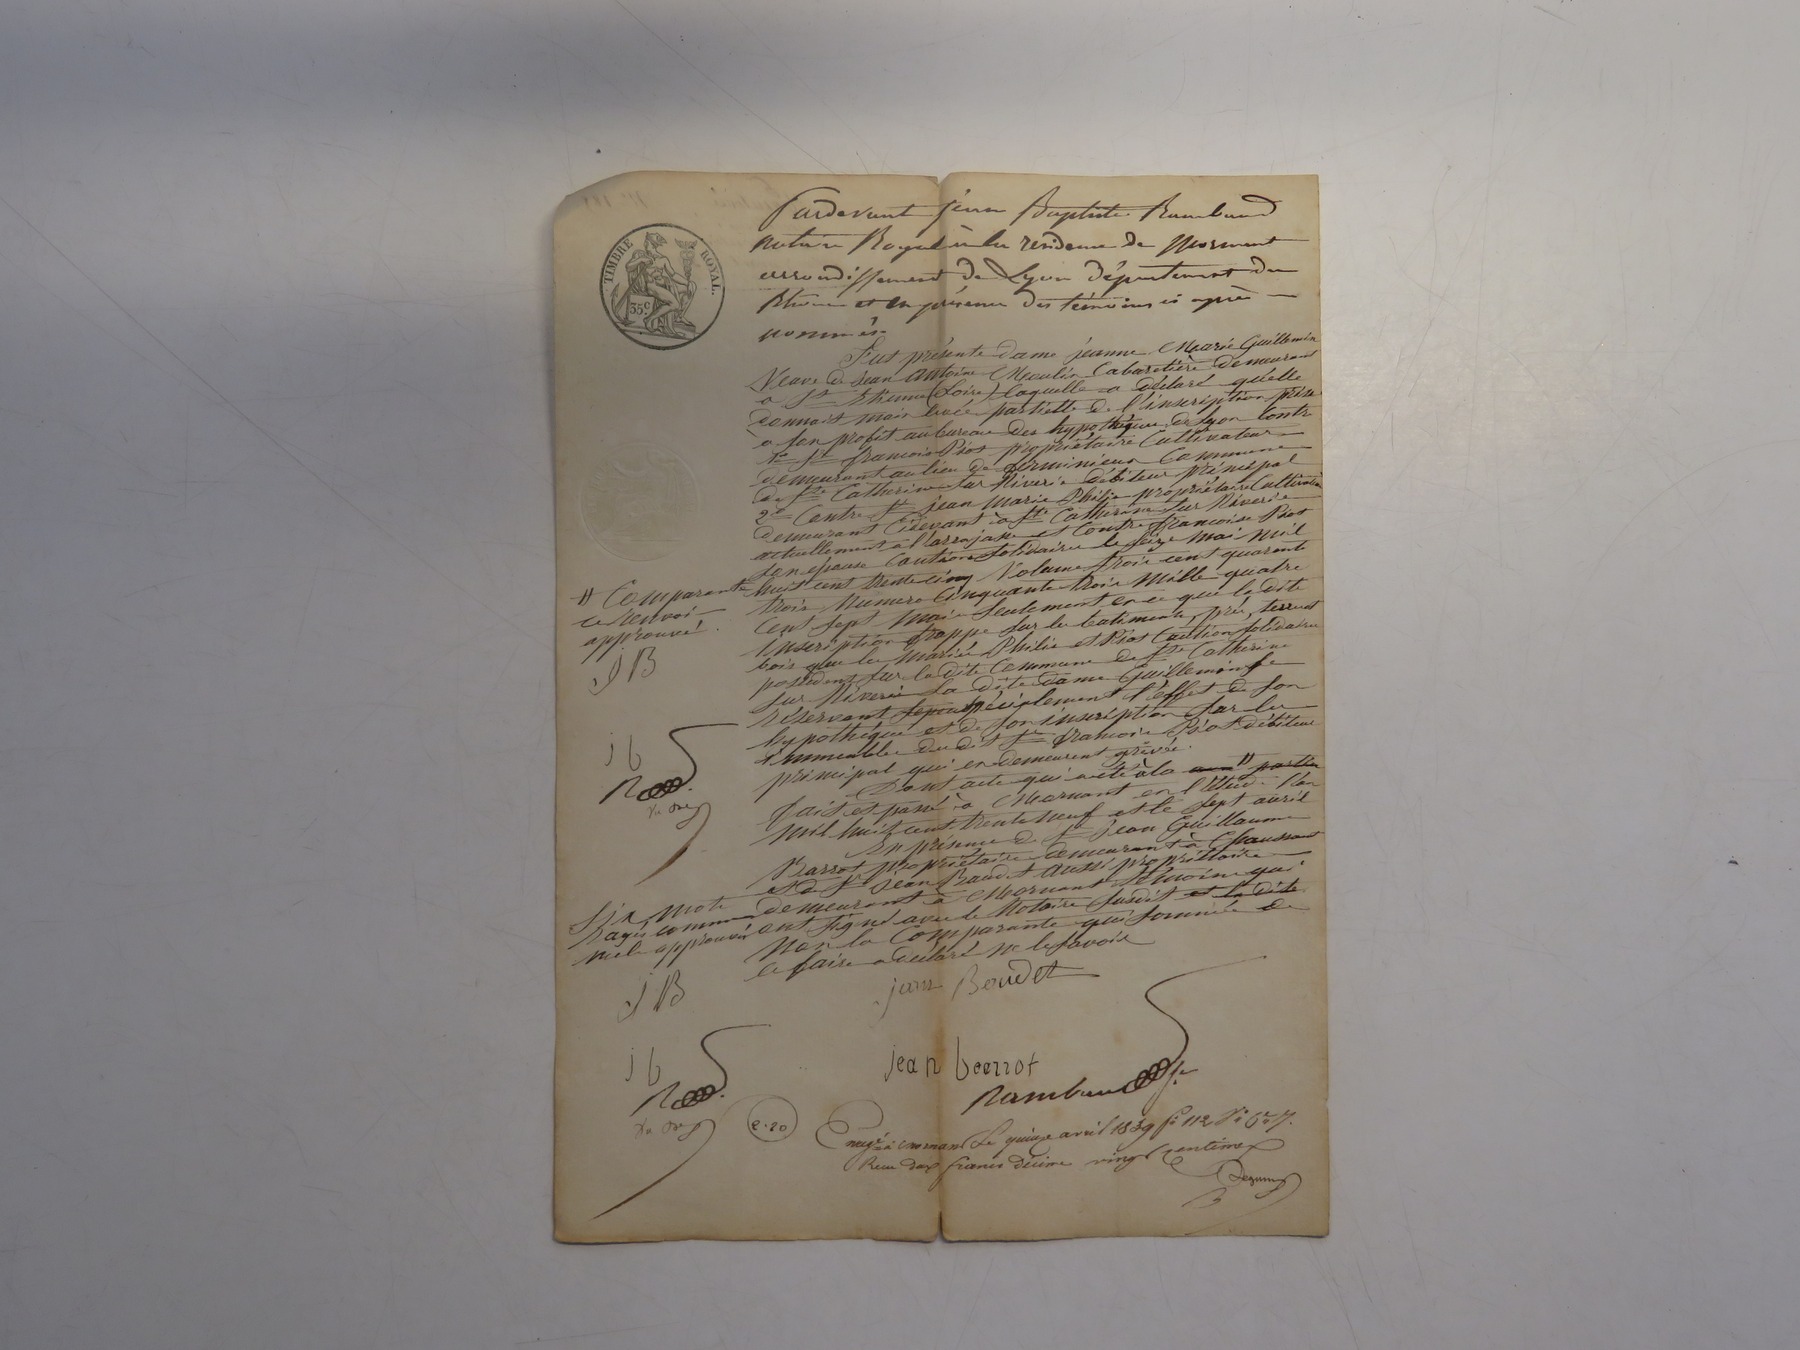 TIMBRE ROYAL.
35c
Pardevant jean Baptiste Rambaud
notaire Royal à la residence de Mornant
arrondissement de Lyon département du
Rhône et en présence des témoins ci après
nommés.
Fut présente dame jeanne Marie Guillemin
Veuve de jean antoine Moulin Cabaretière demeurant
à St Etienne (Loire) laquelle a déclaré quelle
donnoit main levée partielle de l'inscription prise
à son profit au bureau des hypothèque de Lyon Contre
1er Sr francois Piot propriétaire Cultivateur
demeurant au lieu de Commune
de Ste Catherine sur Riverie débiteur principal
2e Contre Sr jean Marie Philis propriétaire Cultivateur
demeurant Cidevant à Ste Catherine sur Riverie
actuellement à l'arrajasse et Contre francoise Piot
son épouse Cautions solidaires le seize mai mil
huit cent trente cinq Volume trois cent quarante
trois Numero Cinquante trois mille quatre
cent sept mais seulement en ce que la dite
inscription frappe sur les batiments, prés, terres et
bois que les mariés Philis et Piot Caution solidaire
possèdent sur la dite Commune de Ste Catherine
sur Riverie la dite dame Guillemin se
réservant spécialement l'effet de son
hypothèque et de son inscription sur les
immeubles du dit Sr francois Piot débiteur
principal qui en demeurent grévés.
Dont acte qui a été à la " partie
fait et passé à Mornant en l'Etude l'an
mil huit cent trente neuf et le sept avril
En présence de Sr jean Guillaume
Barrot propriétaire demeurant à Chaussant
et de Sr jean Baudet aussi propriétaire
demeurant à Mornant témoins qui
ont signé avec le Notaire susdit et la dite
Non la Comparante qui sommée de
le faire a déclaré ne le savoir
" Comparante
ce renvoi
approuvé.
J B
j b
Six mots
rayés comme
nuls approuvés
J B
j b
jean Beaudet
jean beerrot
Rambaud
2.20
Enregé à mornant Le quinze avril 1839 fo 112 Vo Cer 7.
Recu deux francs décime vingt centimes